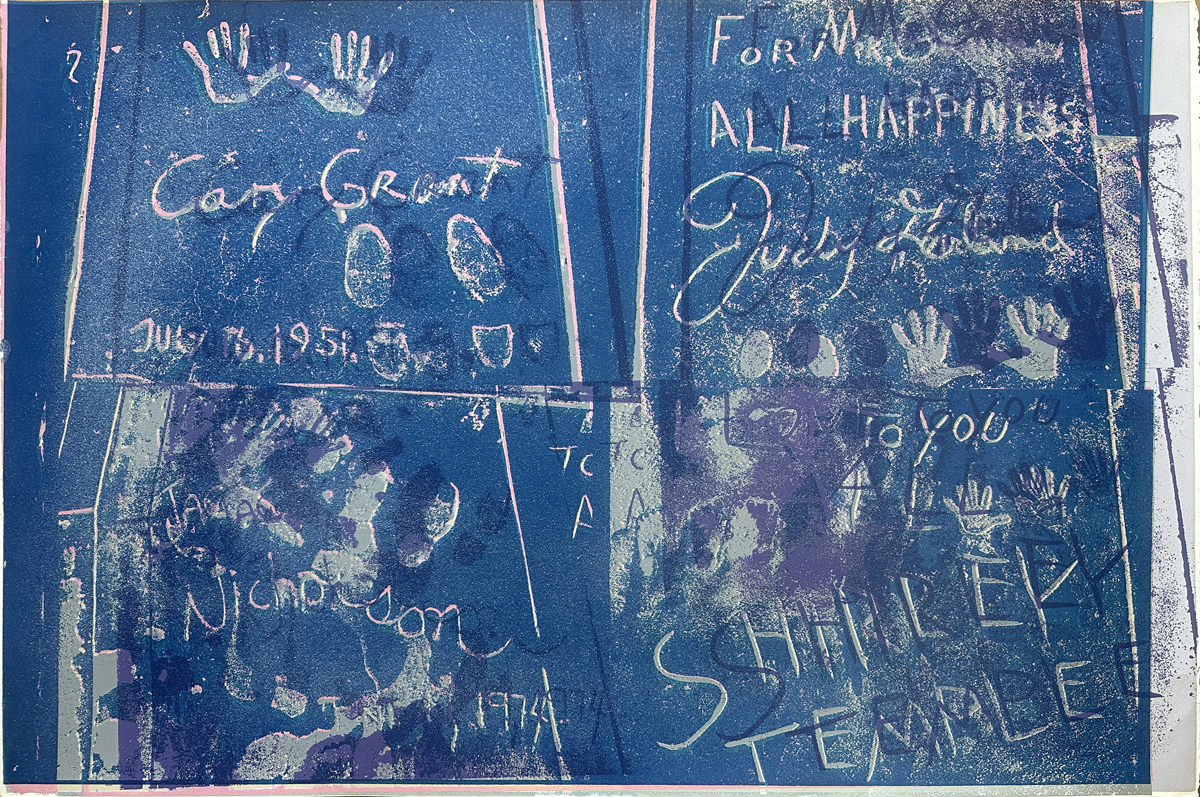 Cary Grant
JULY 16, 1951.
FOR MR. G
ALL HAPPINESS
Judy Garland
Nicholson
1974
To
A
To YOU
SHIRLEY
TEMPLE